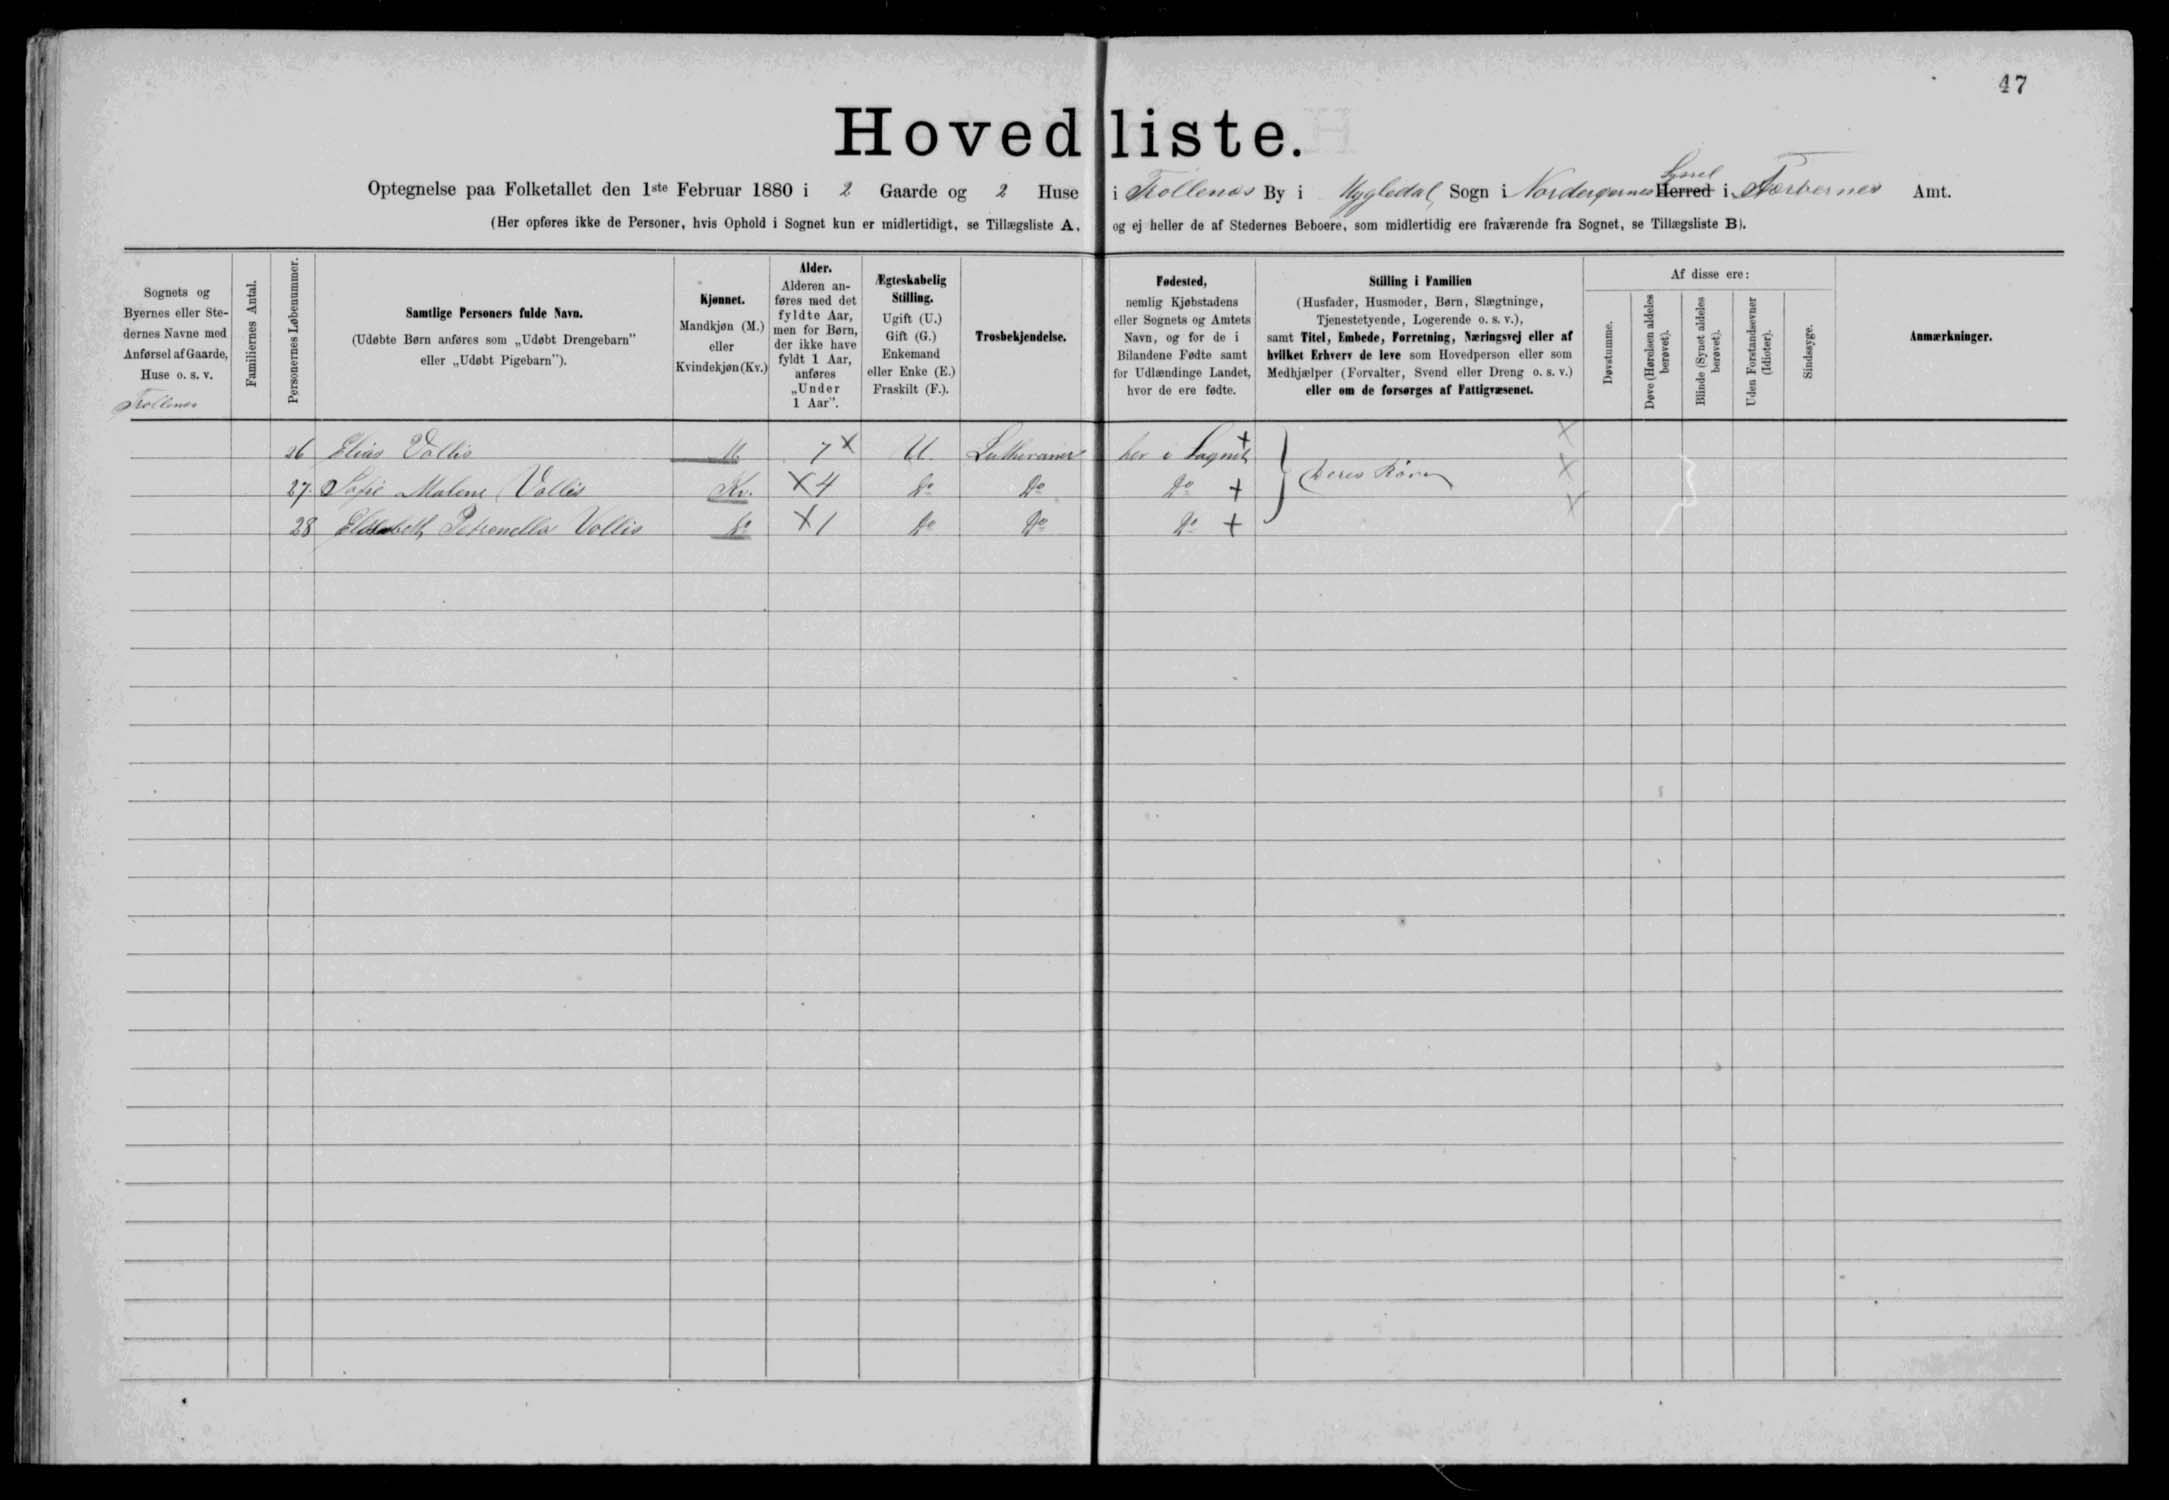 47
Hovedliste.
Optegnelse paa Folketallet den 1ste Februar 1880 i 2 Gaarde og 2 Huse i Trollenæs By i Mygledal Sogn i Norderøernes Herred Syssel i Færøernes Amt.
(Her opføres ikke de Personer, hvis Ophold i Sognet kun er midlertidigt, se Tillægsliste A, og ej heller de af Stedernes Beboere, som midlertidig ere fraværende fra Sognet, se Tillægsliste B).
Sognets og Byernes eller Stedernes Navne med Anførsel af Gaarde, Huse o. s. v.
Familiernes Antal.
Personernes Løbenummer.
Samtlige Personers fulde Navn.
(Udøbte Børn anføres som „Udøbt Drengebarn” eller „Udøbt Pigebarn”).
Kjønnet.
Mandkjøn (M.) eller Kvindekjøn (Kv.)
Alder.
Alderen anføres med det fyldte Aar, men for Børn, der ikke have fyldt 1 Aar, anføres „Under 1 Aar”.
Ægteskabelig Stilling.
Ugift (U.)
Gift (G.)
Enkemand eller Enke (E.)
Fraskilt (F.).
Trosbekjendelse.
Fødested,
nemlig Kjøbstadens eller Sognets og Amtets Navn, og for de i Bilandene Fødte samt for Udlændinge Landet, hvor de ere fødte.
Stilling i Familien
(Husfader, Husmoder, Børn, Slægtninge, Tjenestetyende, Logerende o. s. v.),
samt Titel, Embede, Forretning, Næringsvej eller af hvilket Erhverv de leve som Hovedperson eller som Medhjælper (Forvalter, Svend eller Dreng o. s. v.) eller om de forsørges af Fattigvæsenet.
Af disse ere:
Døvstumme.
Døve (Hørelsen aldeles berøvet).
Blinde (Synet aldeles berøvet).
Uden Forstandsevner (Idioter).
Sindssyge.
Anmærkninger.
Trollenæs
26 Elias Vollis M. 7 X U. Lutheraner her i Sognet + } Deres Børn X
27. Sofie Malene Vollis Kv. X 4 Do Do Do + X
28 Elisabeth Petronella Vollis Do X 1 Do Do Do + X